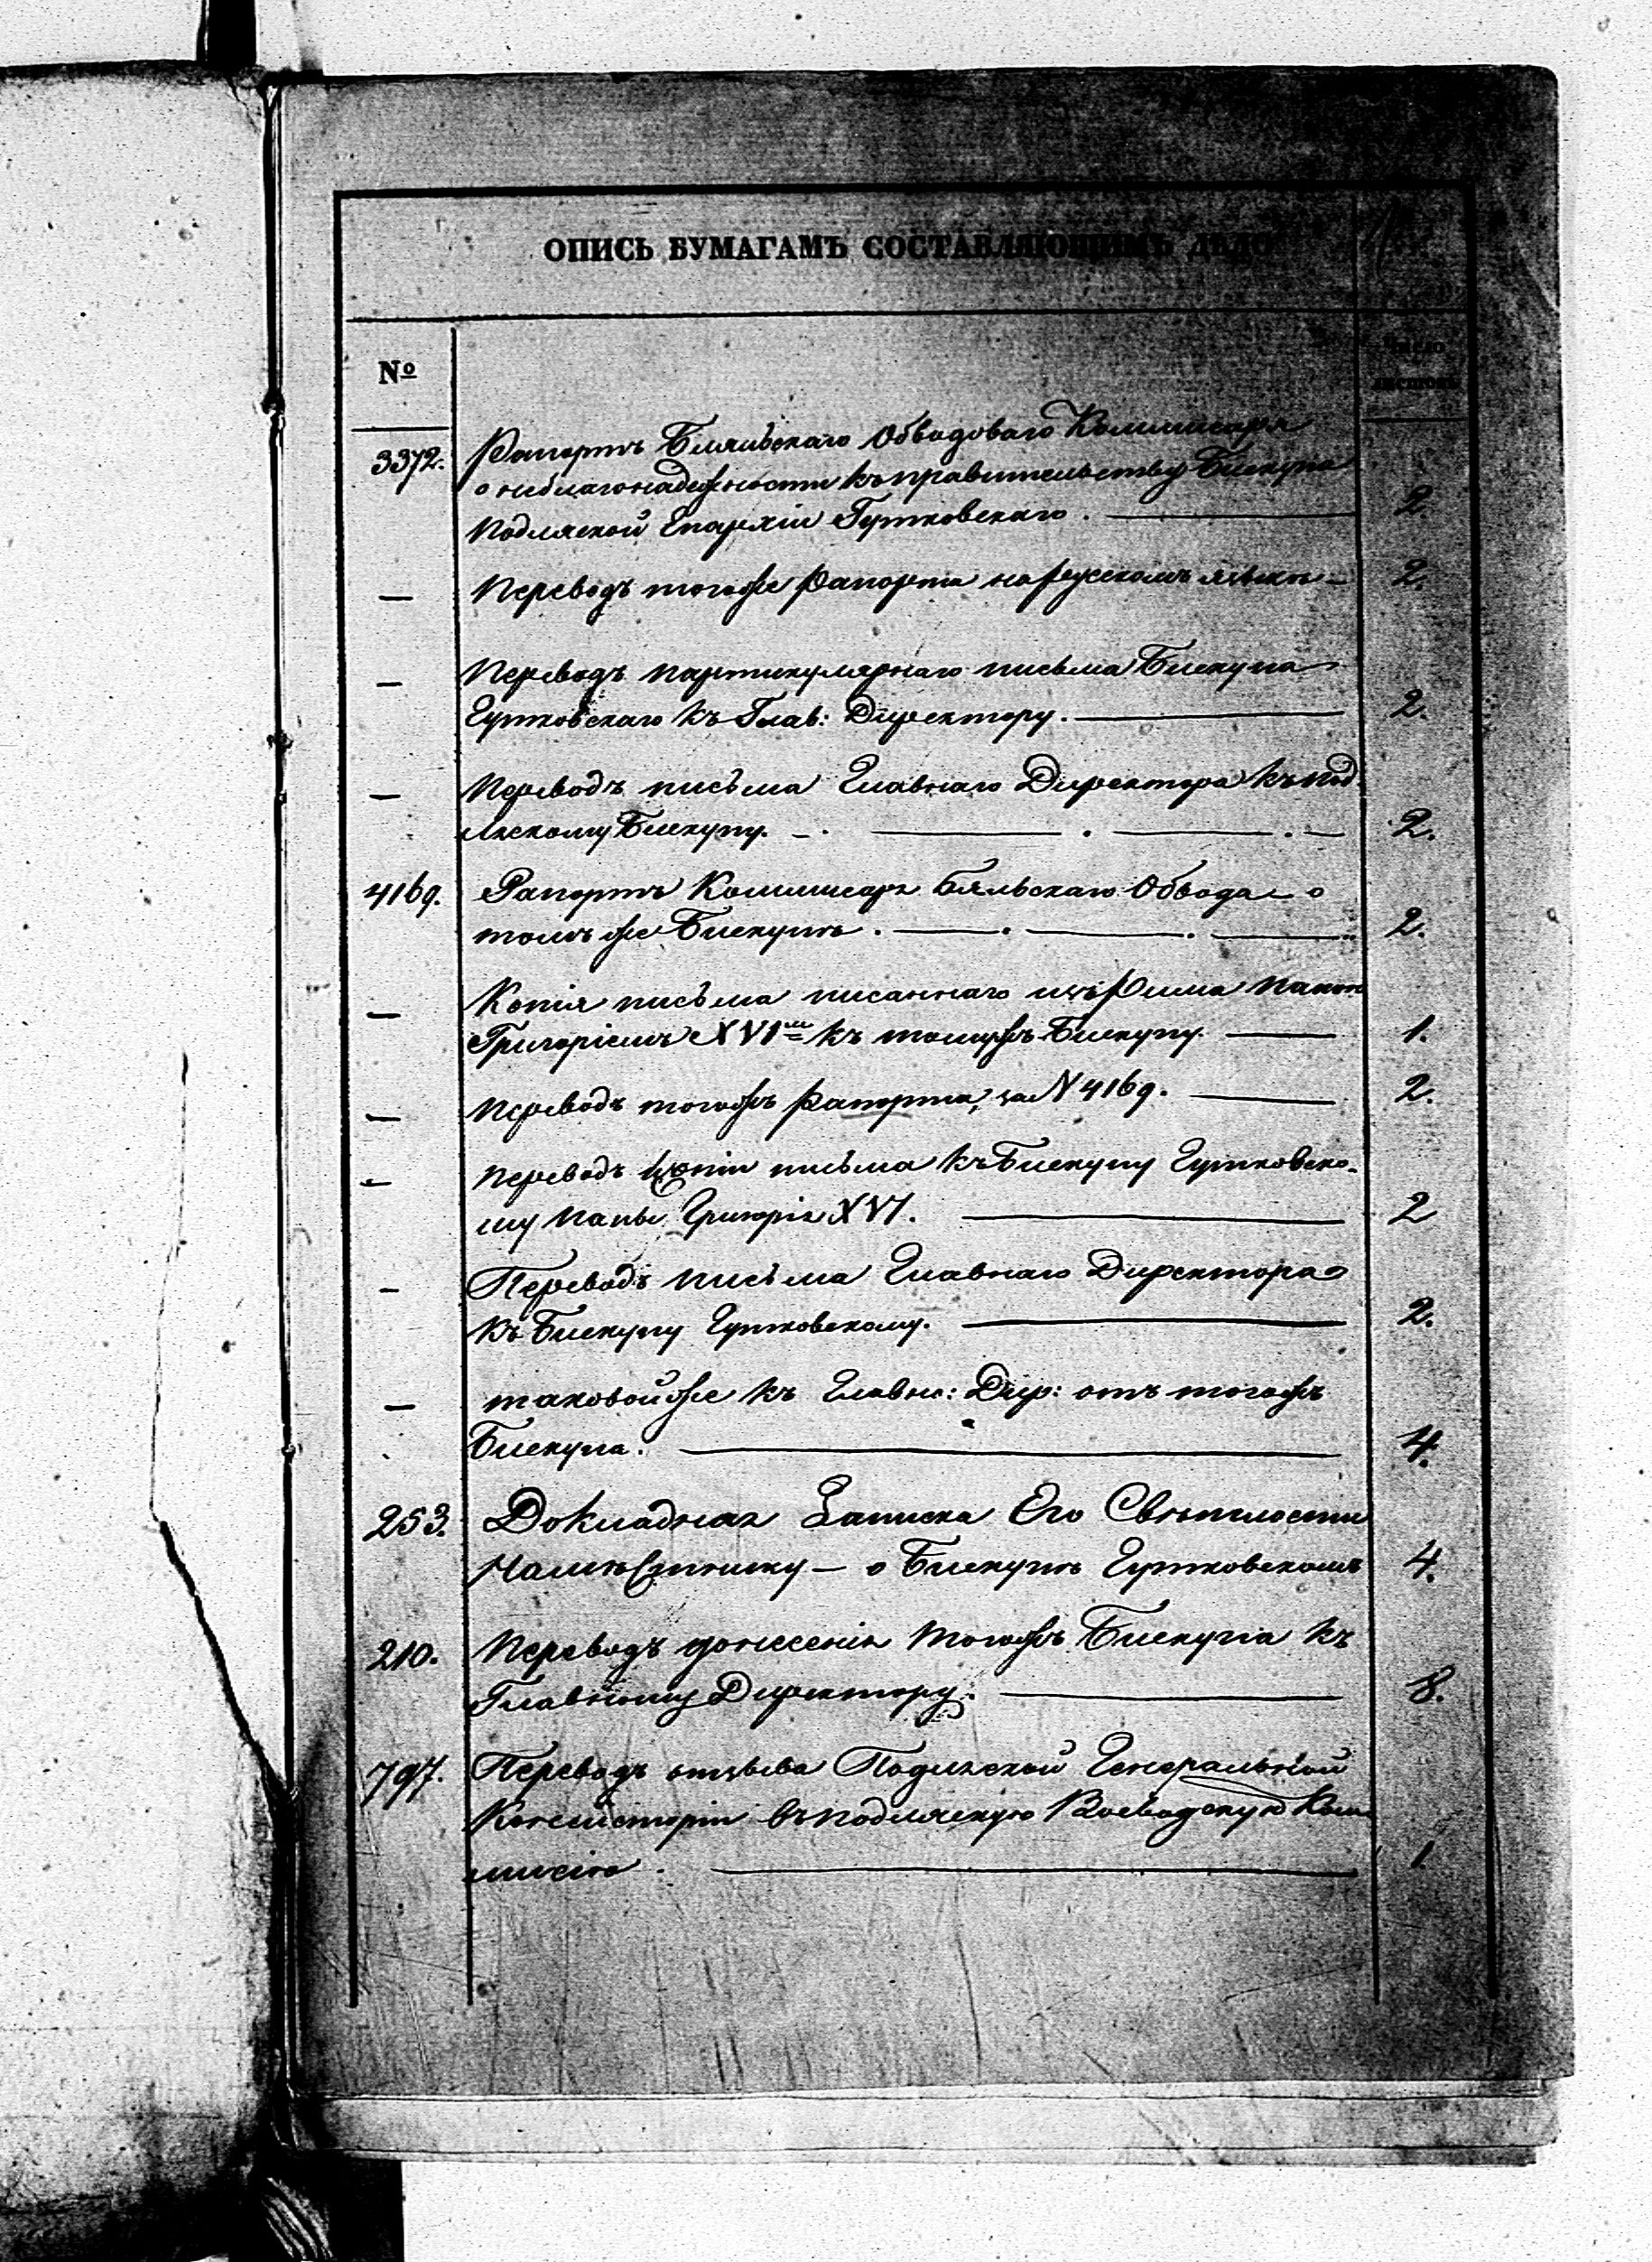 ОПИСЬ БУМАГАМЪ СОСТАВЛЯЮЩИМЪ ДѢЛО
№
Число
листовъ
3372. Рапортъ Бяльскаго Обводоваго Коммисара
о неблагонадежности къ правительству Бискупа 2
Подляской Епархіи Гутковскаго.
— Переводъ тогоже рапорта на русскомъ языкѣ — 2.
— Переводъ партикулярнаго письма Бискупа
Гутковскаго къ Глав: Директору. 2.
— Переводъ письма Главнаго Директора къ Под
ляскому Бискупу. 2.
4169. Рапортъ Коммисара Бяльскаго Обвода о
томъ же Бискупѣ. 2.
— Копія письма писаннаго изъ Рима Папою
Григоріемъ XVIмъ къ томужъ Бискупу. 1.
— Переводъ тогожъ рапорта, за N 4169. 2.
— Переводъ Копіи письма къ Бискупу Гутковско-
му Папы Григорія XVI. 2
— Переводъ письма Главнаго Директора
къ Бискупу Гутковскому. 2.
— таковой же къ Главн: Дир: отъ тогожъ
Бискупа. 4.
253. Докладная Записка Его Свѣтлости
Намѣстнику — о Бискупѣ Гутковскомъ 4.
210. Переводъ донесенія тогожъ Бискупа къ
Главному Директору. 8.
797. Переводъ отзыва Подляской Генеральной
Консисторіи въ подляскую Воеводскую Ком
мисію. 1